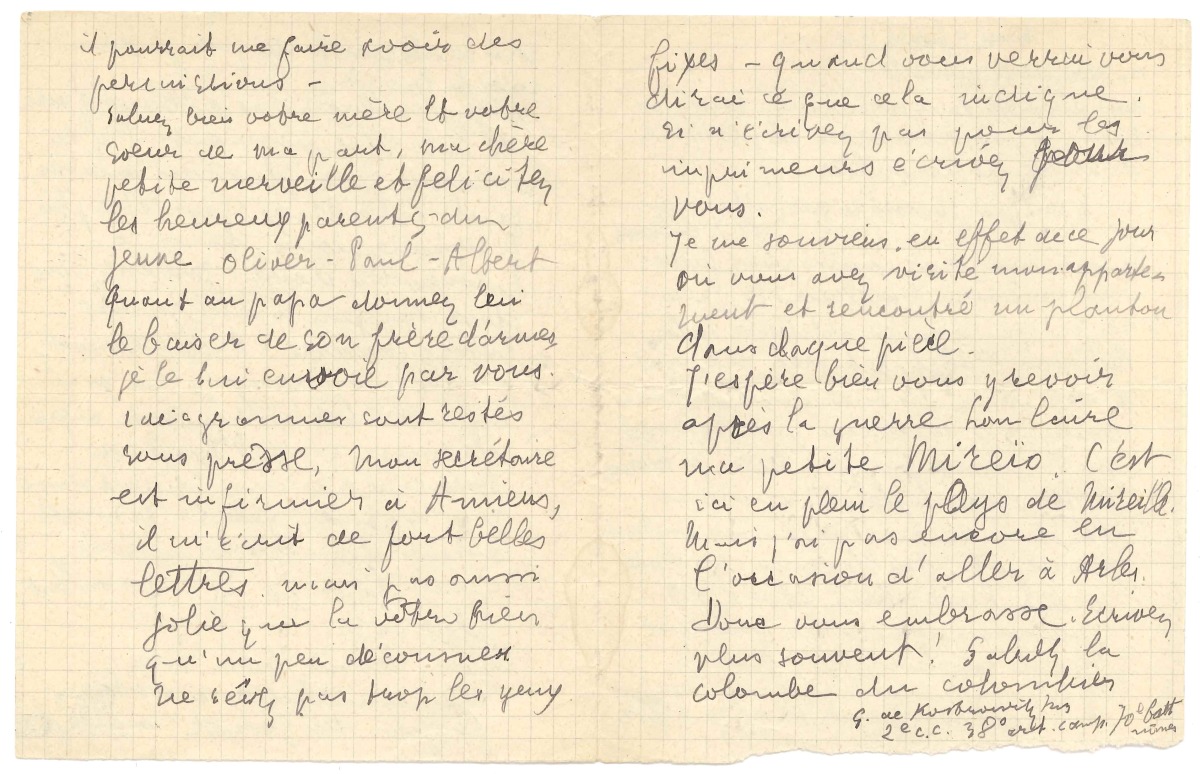 il pourrait me faire avoir des
permissions -
Saluez bien votre mère et votre
soeur de ma part, ma chère
petite merveille et félicitez
les heureux parents du
jeune Oliver-Paul-Albert
Quant au papa donnez lui
le baiser de son frère d'armes
je le lui envoie par vous.
idéogrammes sont restés
sous presse, mon secrétaire
est infirmier à Amiens,
il m'écrit de fort belles
lettres mais pas aussi
jolie que la vôtre bien
qu'un peu décousues
ne pas trop les yeux
fixes - quand vous verrai vous
dirai ce que cela indique.
Si n'écrivez pas pour les
imprimeurs écrivez pour
vous.
Je me souviens en effet de ce jour
où vous avez visité mon apparte-
ment et rencontré un planton
dans chaque pièce.
J'espère bien vous y revoir
après la guerre
ma petite Mireïo. C'est
ici en plein le pays de Mireille.
Mais j'ai pas encore eu
l'occasion d'aller à Arles.
Donc vous embrasse. Ecrivez
plus souvent! Saluez la
colombe du colombier
G. de Kostrowitzky
2e c.c. 38e art. camp. 70e batt
nimes